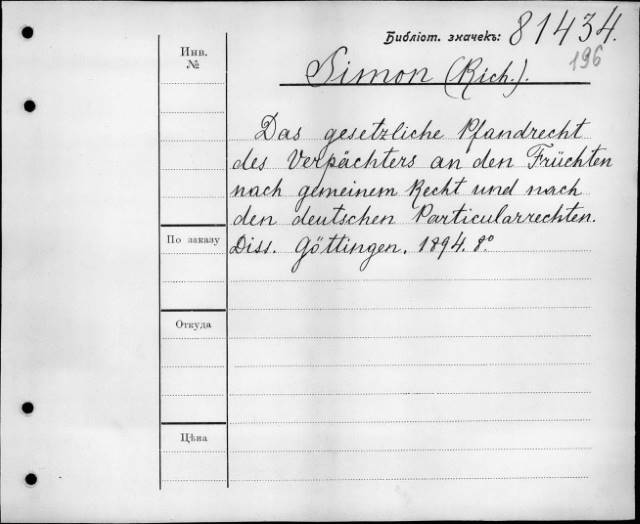 Библіот. значекъ: 81434.
196
Инв.
№
Simon (Rich.).
Das gesetzliche Pfandrecht
des Verpächters an den Früchten
nach gemeinem Recht und nach
den deutschen Particularrechten.
По заказу
Diss. Göttingen. 1894. 8°
Откуда
Цѣна